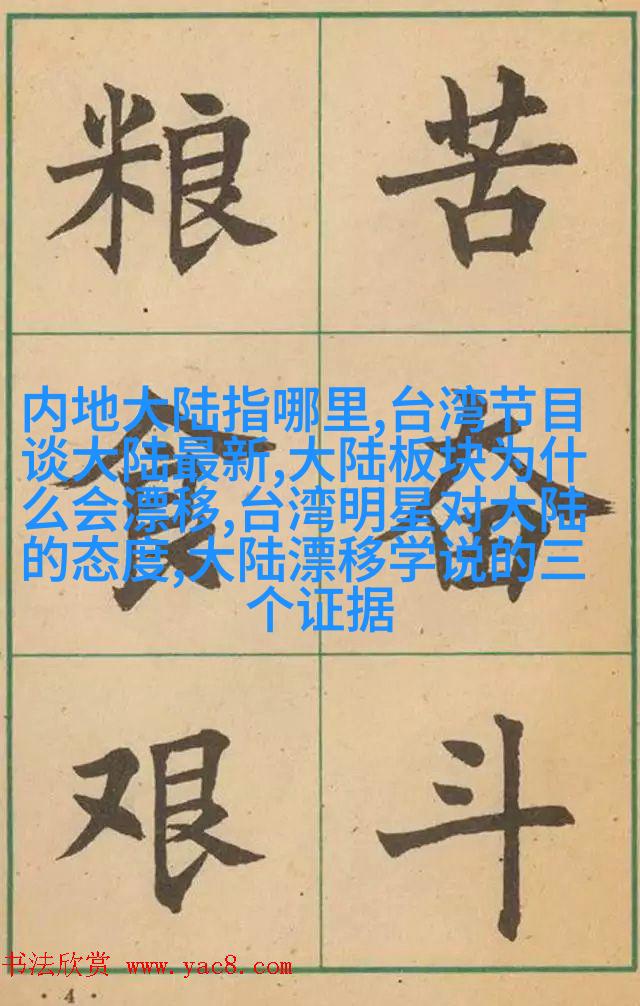 粮 苦
食 奋
艰 斗
内地大陆指哪里,台湾节目
谈大陆最新,大陆板块为什
么会漂移,台湾明星对大陆
的态度,大陆漂移学说的三
个证据
书法欣赏 www.yac8.com
· 4 ·